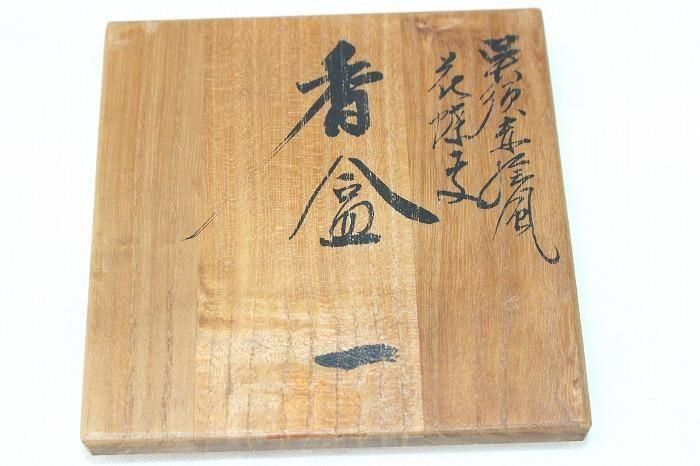 呉須赤絵風
花蝶文
香盒 一